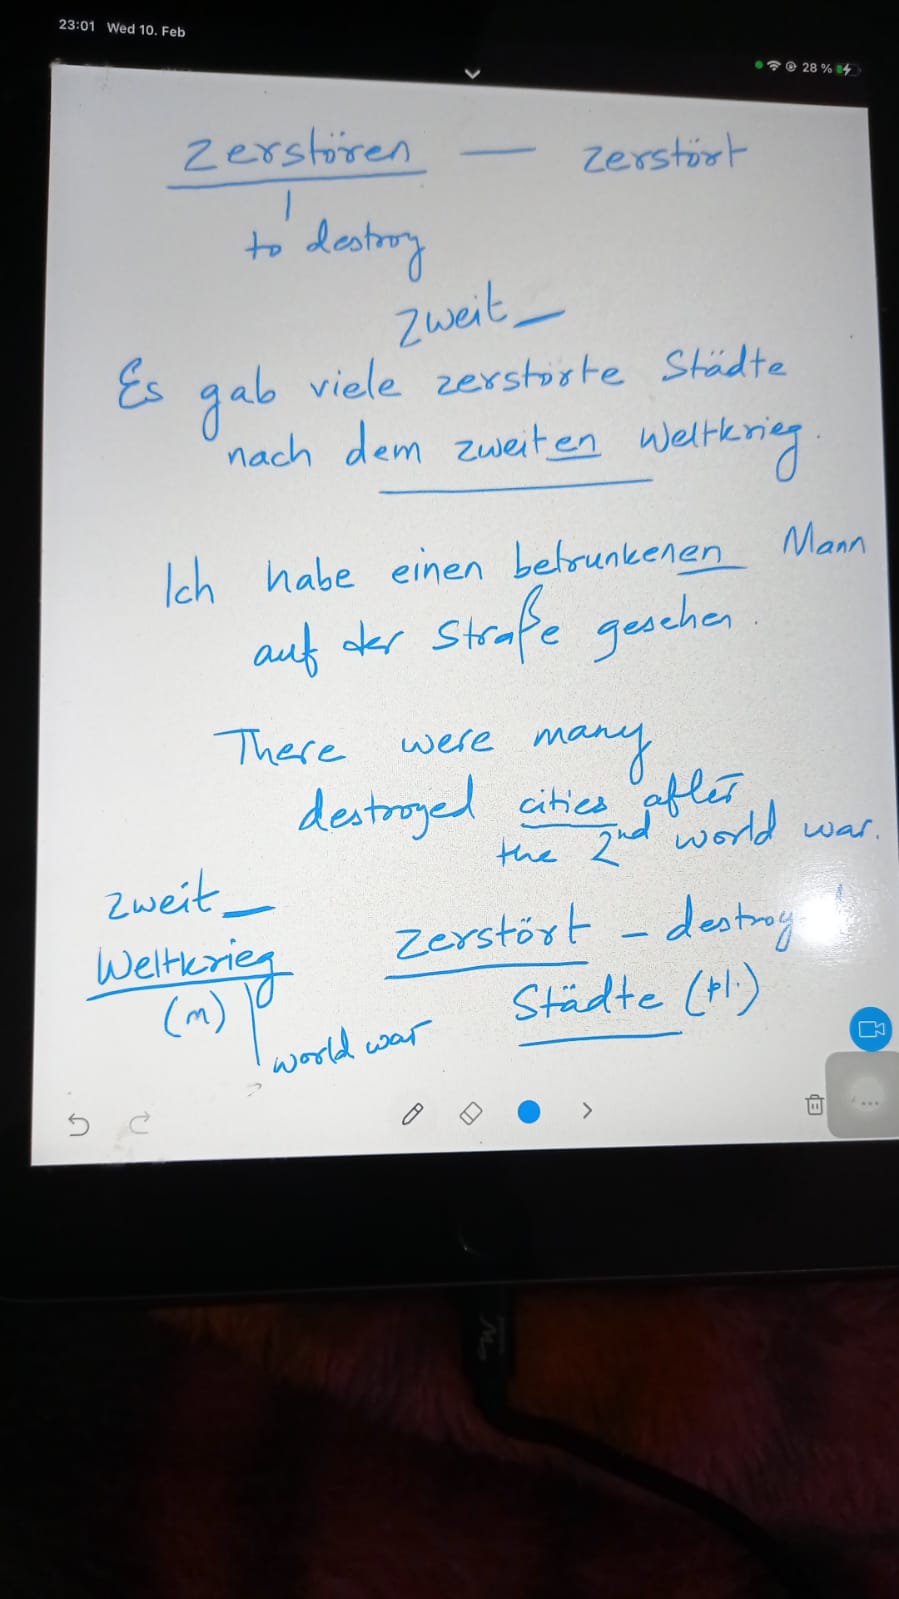 23:01 Wed 10. Feb
28 %
zerstören — zerstört
to destroy
zweit_
Es gab viele zerstörte Städte
nach dem zweiten Weltkrieg.
Ich habe einen betrunkenen Mann
auf der Straße gesehen.
There were many
destroyed cities after
the 2nd world war.
zweit_
Weltkrieg
(m)
world war
zerstört - destroy
Städte (pl.)